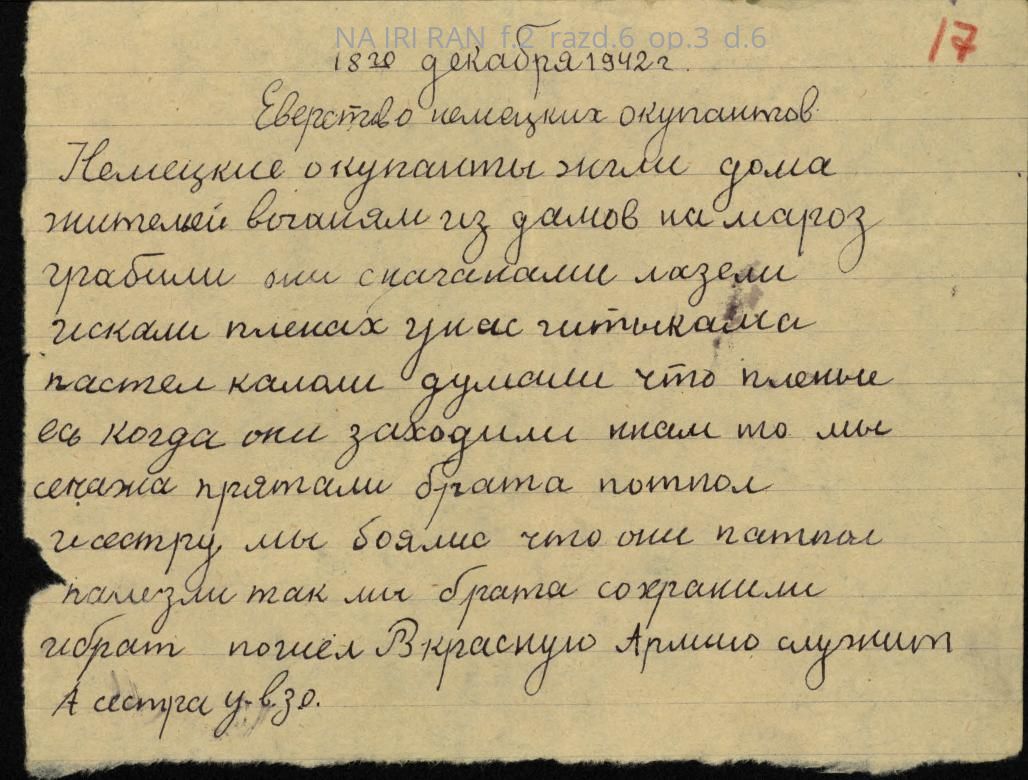 NA IRI RAN f.2 razd.6 op.3 d.6
17
18го декабря 1942 г.
Еверство немецких окупантов
Немецкие окупанты жгли дома
жителей выганям из дамов на мароз
грабили они с пагапами лазели
искали пленах унас
пастел калоли думали что пленые
есь когда они заходили кнам то мы
прятали брата потпол
исестру мы боялис что они патпол
палезли так мы брата сохранили
ибрат пошёл Вкрасную Армию служит
А сестра у.